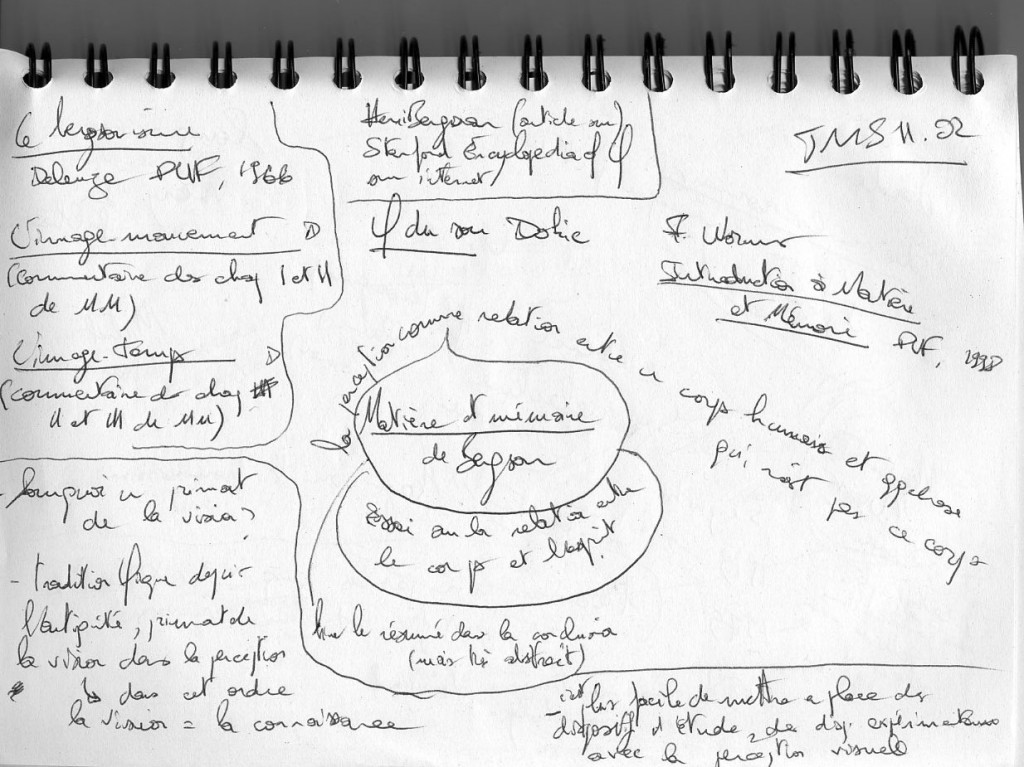 Le bergsonisme
Deleuze PUF, 1966
L'image-mouvement
(commentaire des chap I et II
de MM)
L'image-temps
(commentaire des chap
II et III de MM)
Henri Bergson (article sur
Stanford Encyclopedia of φ
sur internet)
φ du son Dokic
TMS 11.02
F. Worms
Introduction à Matière
et Mémoire PUF, 1998
la perception comme relation entre ce corps humain et qq chose
qui n'est pas ce corps
Matière et mémoire
de Bergson
Essai sur la relation entre
le corps et l'esprit
lire le résumé dans la conclusion
(mais très abstrait)
- Pourquoi ce primat
de la vision ?
- tradition φique depuis
l'antiquité, primat de
la vision dans la perception
↳ dans cet ordre
la vision = la connaissance
- plus facile de mettre en place des
dispositifs d'étude, de disp. expérimentaux
avec la perception visuelle